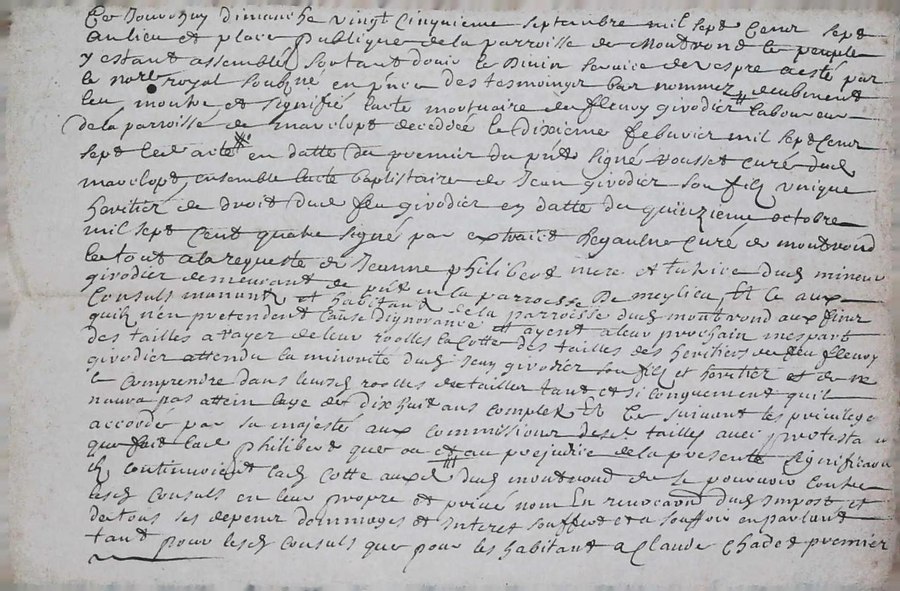 Ce Jourdhuy dimanche vingt cinquieme septembre mil sept cent sept
au lieu et place publique de la parroisse de Montrond le peuple
y estant assemblé sortant douir le divin service de vespre a esté par
le no.re royal soubné en p.nce des tesmoings bas nommez deubment
leu, montré et signifié lacte mortuaire de fleury givodier laboureur
de la parroisse de marclopt decedéé le dixieme febvrier mil sept cent
sept led acte en datte du premier du p.nt signé rousset curé dud
marclopt, ensemble lacte baptistaire de Jean givodier son filz unique
heritier de droit dud feu givodier en datte du quinzieme octobre
mil sept cent quatre signé par extrait curé de montrond
le tout a la requeste de Jeanne philibert mere et tutrice dud mineur
givodier demeurant de p.nt en la parroisse De meylieu, Et ce aux
Consuls manants et habitant de la parroisse dud montrond aux fins
quilz n'en pretendent cause dignorance et ayent a leur prochain
des tailles a rayer de leur roolles la cotte des tailles des heritiers du feu fleury
givodier attendu la minorité dud Jean givodier son filz et heritier et de ne
le comprendre dans leursd roolles de tailles tant et si longuement quil
naura pas attein laye de dix huit ans complet Et ce suivant les privilege
accordé par sa majesté aux commissions desd tailles avec protesta
que fait lad Philibert que ou et au prejudice de la presente signification
ilz continuoient lad cotte auxd dud montrond de se pourvoir contre
lesd consuls en leur propre et privé nom En revocaon dud Impost et
de tous ses depens dommages et Interet souffert et a souffrir en parlant
tant pour lesd consuls que pour les habitant a Claude Chadet premier